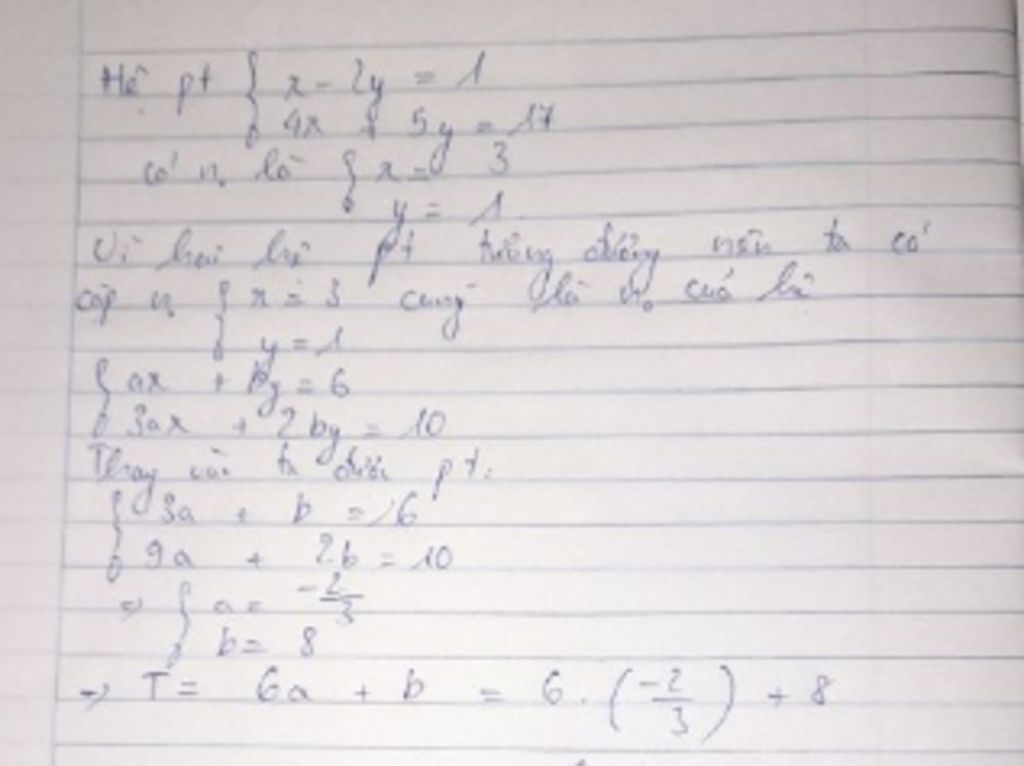 Hệ pt { x - 2y = 1
4x + 5y = 17
có n₀ là { x = 3
y = 1
Vì hai hệ pt tương đương nên ta có
cặp n₀ { x = 3 cũng là n₀ của hệ
y = 1
{ ax + by = 6
3ax + 2by = 10
Thay vào ta được pt:
{ 3a + b = 6
9a + 2b = 10
=> { a = -2/3
b = 8
-> T = 6a + b = 6 . (-2/3) + 8